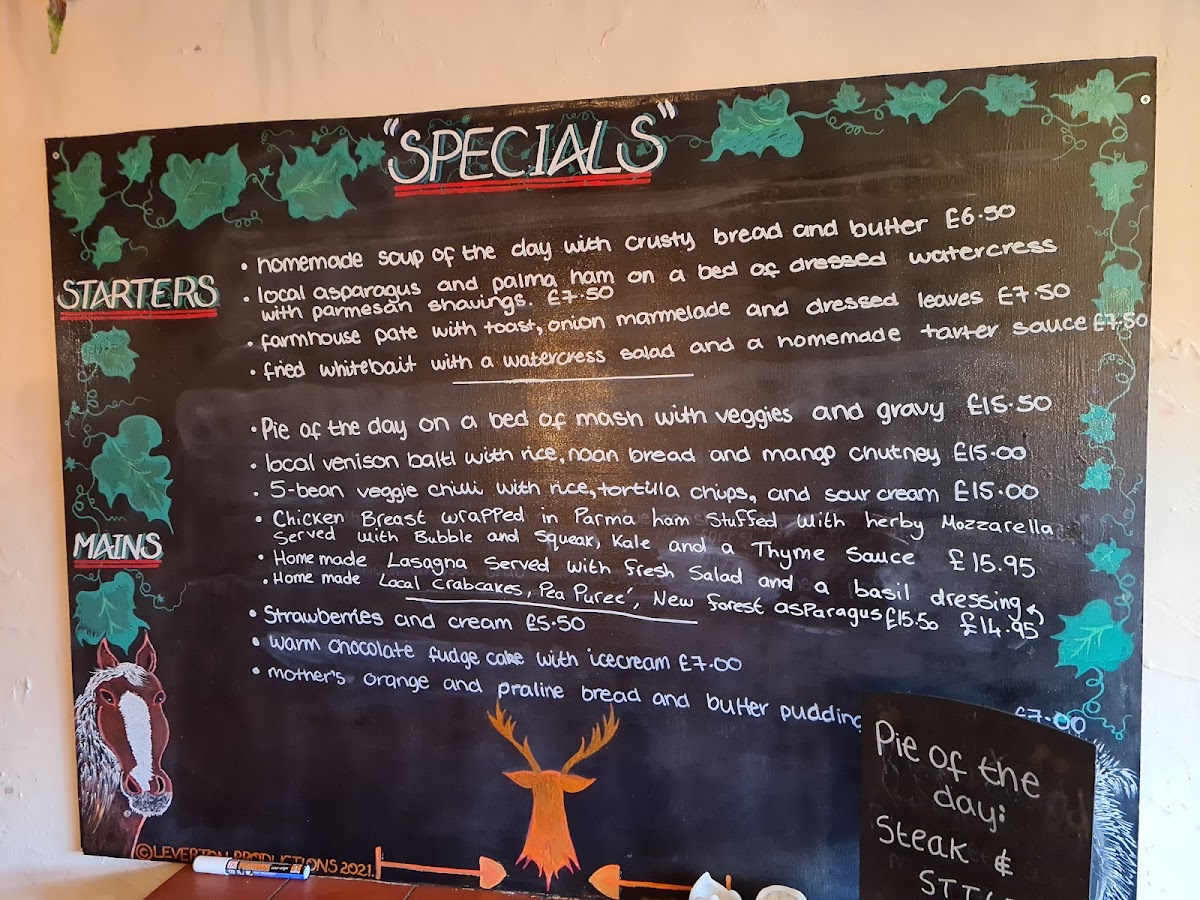 "SPECIALS"
STARTERS
• homemade soup of the day with crusty bread and butter £6.50
• local asparagus and palma ham on a bed of dressed watercress
with parmesan shavings. £7.50
• farmhouse pate with toast, onion marmelade and dressed leaves £7.50
• fried whitebait with a watercress salad and a homemade tarter sauce £7.50
MAINS
• Pie of the day on a bed of mash with veggies and gravy £15.50
• local venison balti with rice, naan bread and mango chutney £15.00
• 5-bean veggie chilli with rice, tortilla chips, and sour cream £15.00
• Chicken Breast wrapped in Parma ham Stuffed with herby Mozzarella
Served with Bubble and Squeak, Kale and a Thyme Sauce £15.95
• Home made Lasagna Served with fresh Salad and a basil dressing
£14.95
• Home made Local Crabcakes, Pea Pureé, New forest asparagus £15.50
• Strawberries and cream £5.50
• warm chocolate fudge cake with icecream £7.00
• mother's orange and praline bread and butter pudding £7.00
Pie of the
day:
Steak &
©LEVERTON PRODUCTIONS 2021.